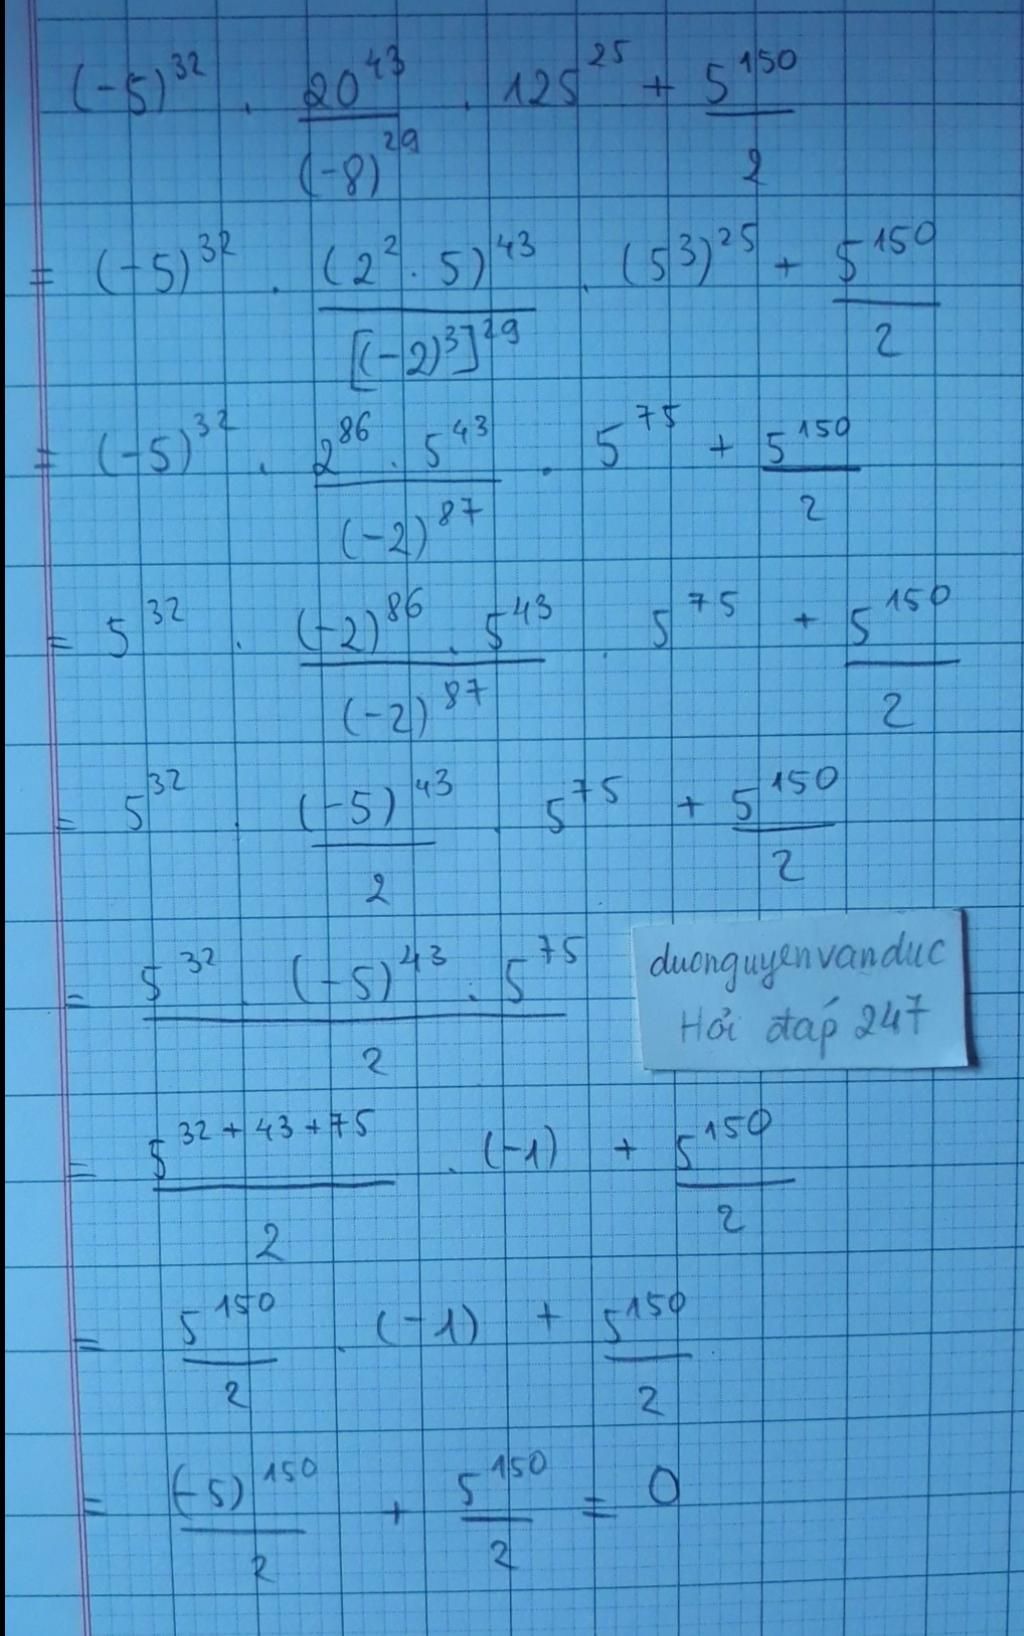 (-5)^32 . 20^43/(-8)^29 . 125^25 + 5^150/2
= (-5)^32 . (2^2 . 5)^43/[(-2)^3]^29 . (5^3)^25 + 5^150/2
= (-5)^32 . 2^86 . 5^43/(-2)^87 . 5^75 + 5^150/2
= 5^32 . (-2)^86 . 5^43/(-2)^87 . 5^75 + 5^150/2
= 5^32 . (-5)^43/2 . 5^75 + 5^150/2
= 5^32 . (-5)^43 . 5^75/2
duonguyenvanduc
Hỏi đáp 247
= 5^32+43+75/2 . (-1) + 5^150/2
= 5^150/2 . (-1) + 5^150/2
= (-5)^150/2 + 5^150/2 = 0